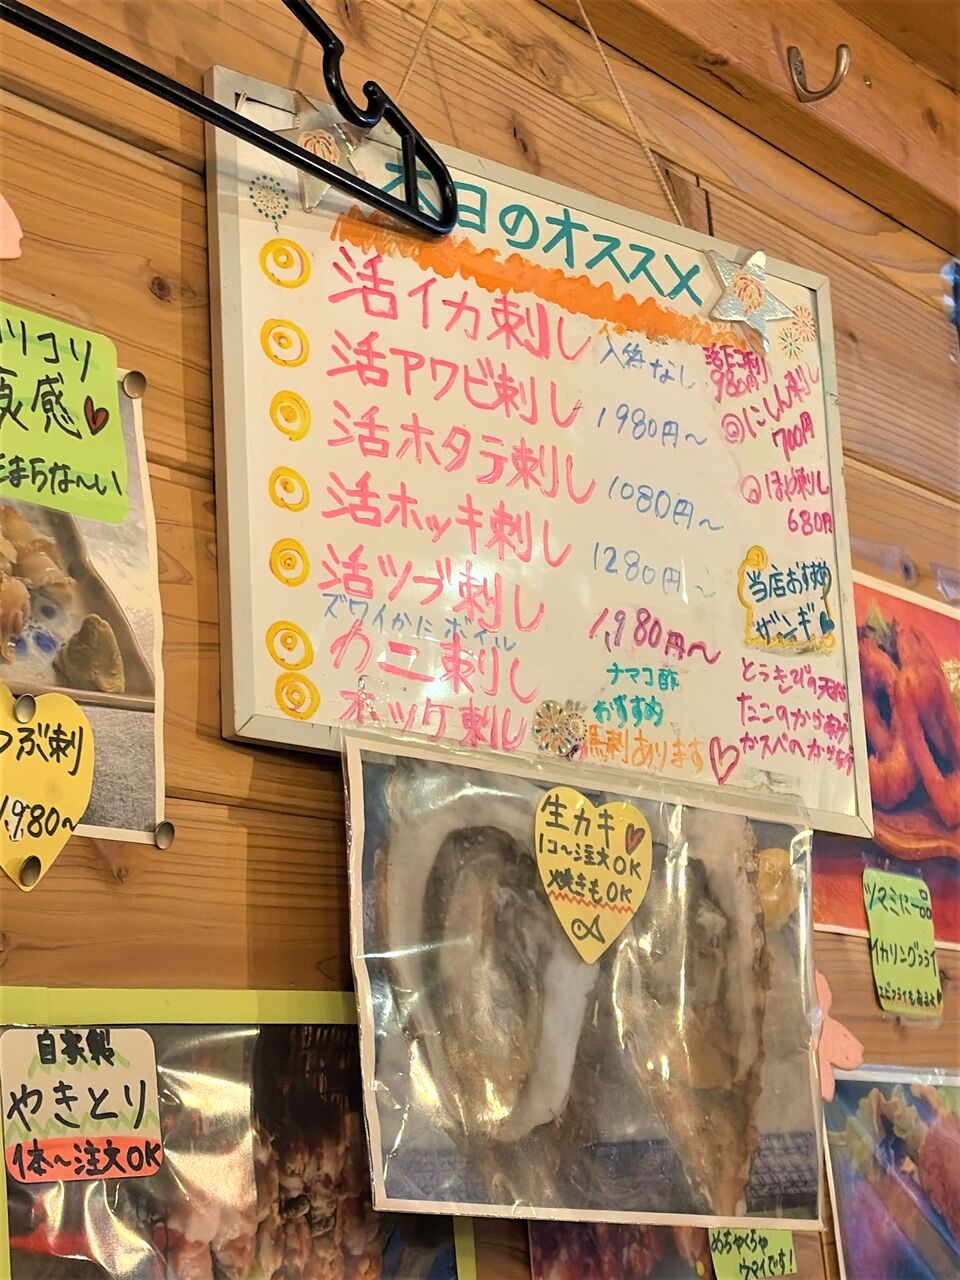 本日のオススメ
活イカ刺し 入荷なし
活アワビ刺し 1980円〜
活ホタテ刺し 1080円〜
活ホッキ刺し 1280円〜
活ツブ刺し 1,980円〜
ズワイかにボイル
カニ刺し
ホッケ刺し
ナマコ酢
おすすめ
馬刺あります
980円
◎にしん刺し
700円
◎ほや刺し
680円
当店おすすめ
ザンギ
とうきびの天ぷら
たこのかけあげ
カスベのかけあげ
コリ
食感
たまらな〜い
つぶ刺
1,980〜
生カキ
1コ〜注文OK
焼きもOK
ツマミに一品
イカリングフライ
エビフライもあるよ
自家製
やきとり
1本〜注文OK
めちゃくちゃ
ウマイです!